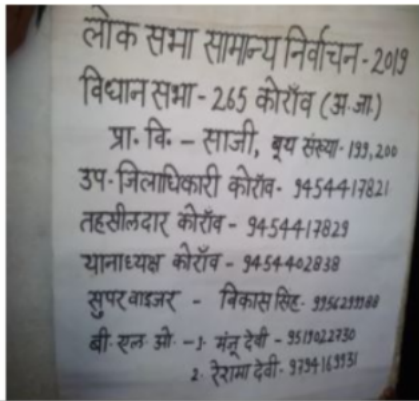 लोक सभा सामान्य निर्वाचन - 2019
विधान सभा - 265 कोराँव (अ.जा.)
प्रा. वि. - साजी, बूथ संख्या - 199, 200
उप-जिलाधिकारी कोराँव - 9454417821
तहसीलदार कोराँव - 9454417829
थानाध्यक्ष कोराँव - 9454402838
सुपरवाइजर - विकास सिंह - 9956299988
बी. एल. ओ. - 1. मंजू देवी - 9519022730
2. रेरामा देवी - 9794169931